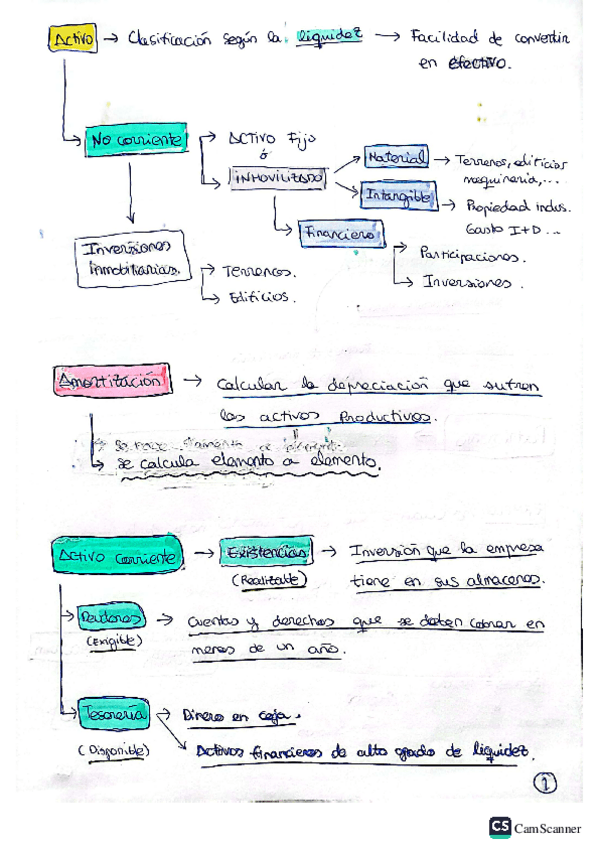 Activo → Clasificación según la liquidez → Facilidad de convertir
en efectivo.
No corriente → Activo Fijo
ó
→ inmovilizado → Material → Terrenos, edificios
maquinaria,...
→ Intangible → Propiedad indus.
Gasto I+D...
→ Financiero → Participaciones.
→ Inversiones.
Inversiones
inmobiliarias. → Terrenos.
→ Edificios.
Amortización → Calcular la depreciación que sufren
los activos Productivos.
→ se calcula elemento a elemento.
Activo corriente → Existencias → Inversión que la empresa
(Realizable) tiene en sus almacenes.
→ Deudores → Cuentas y derechos que se deben cobrar en
(Exigible) menos de un año.
→ Tesorería → Dinero en caja.
(Disponible) → Activos financieros de alto grado de liquidez.
1
CS CamScanner